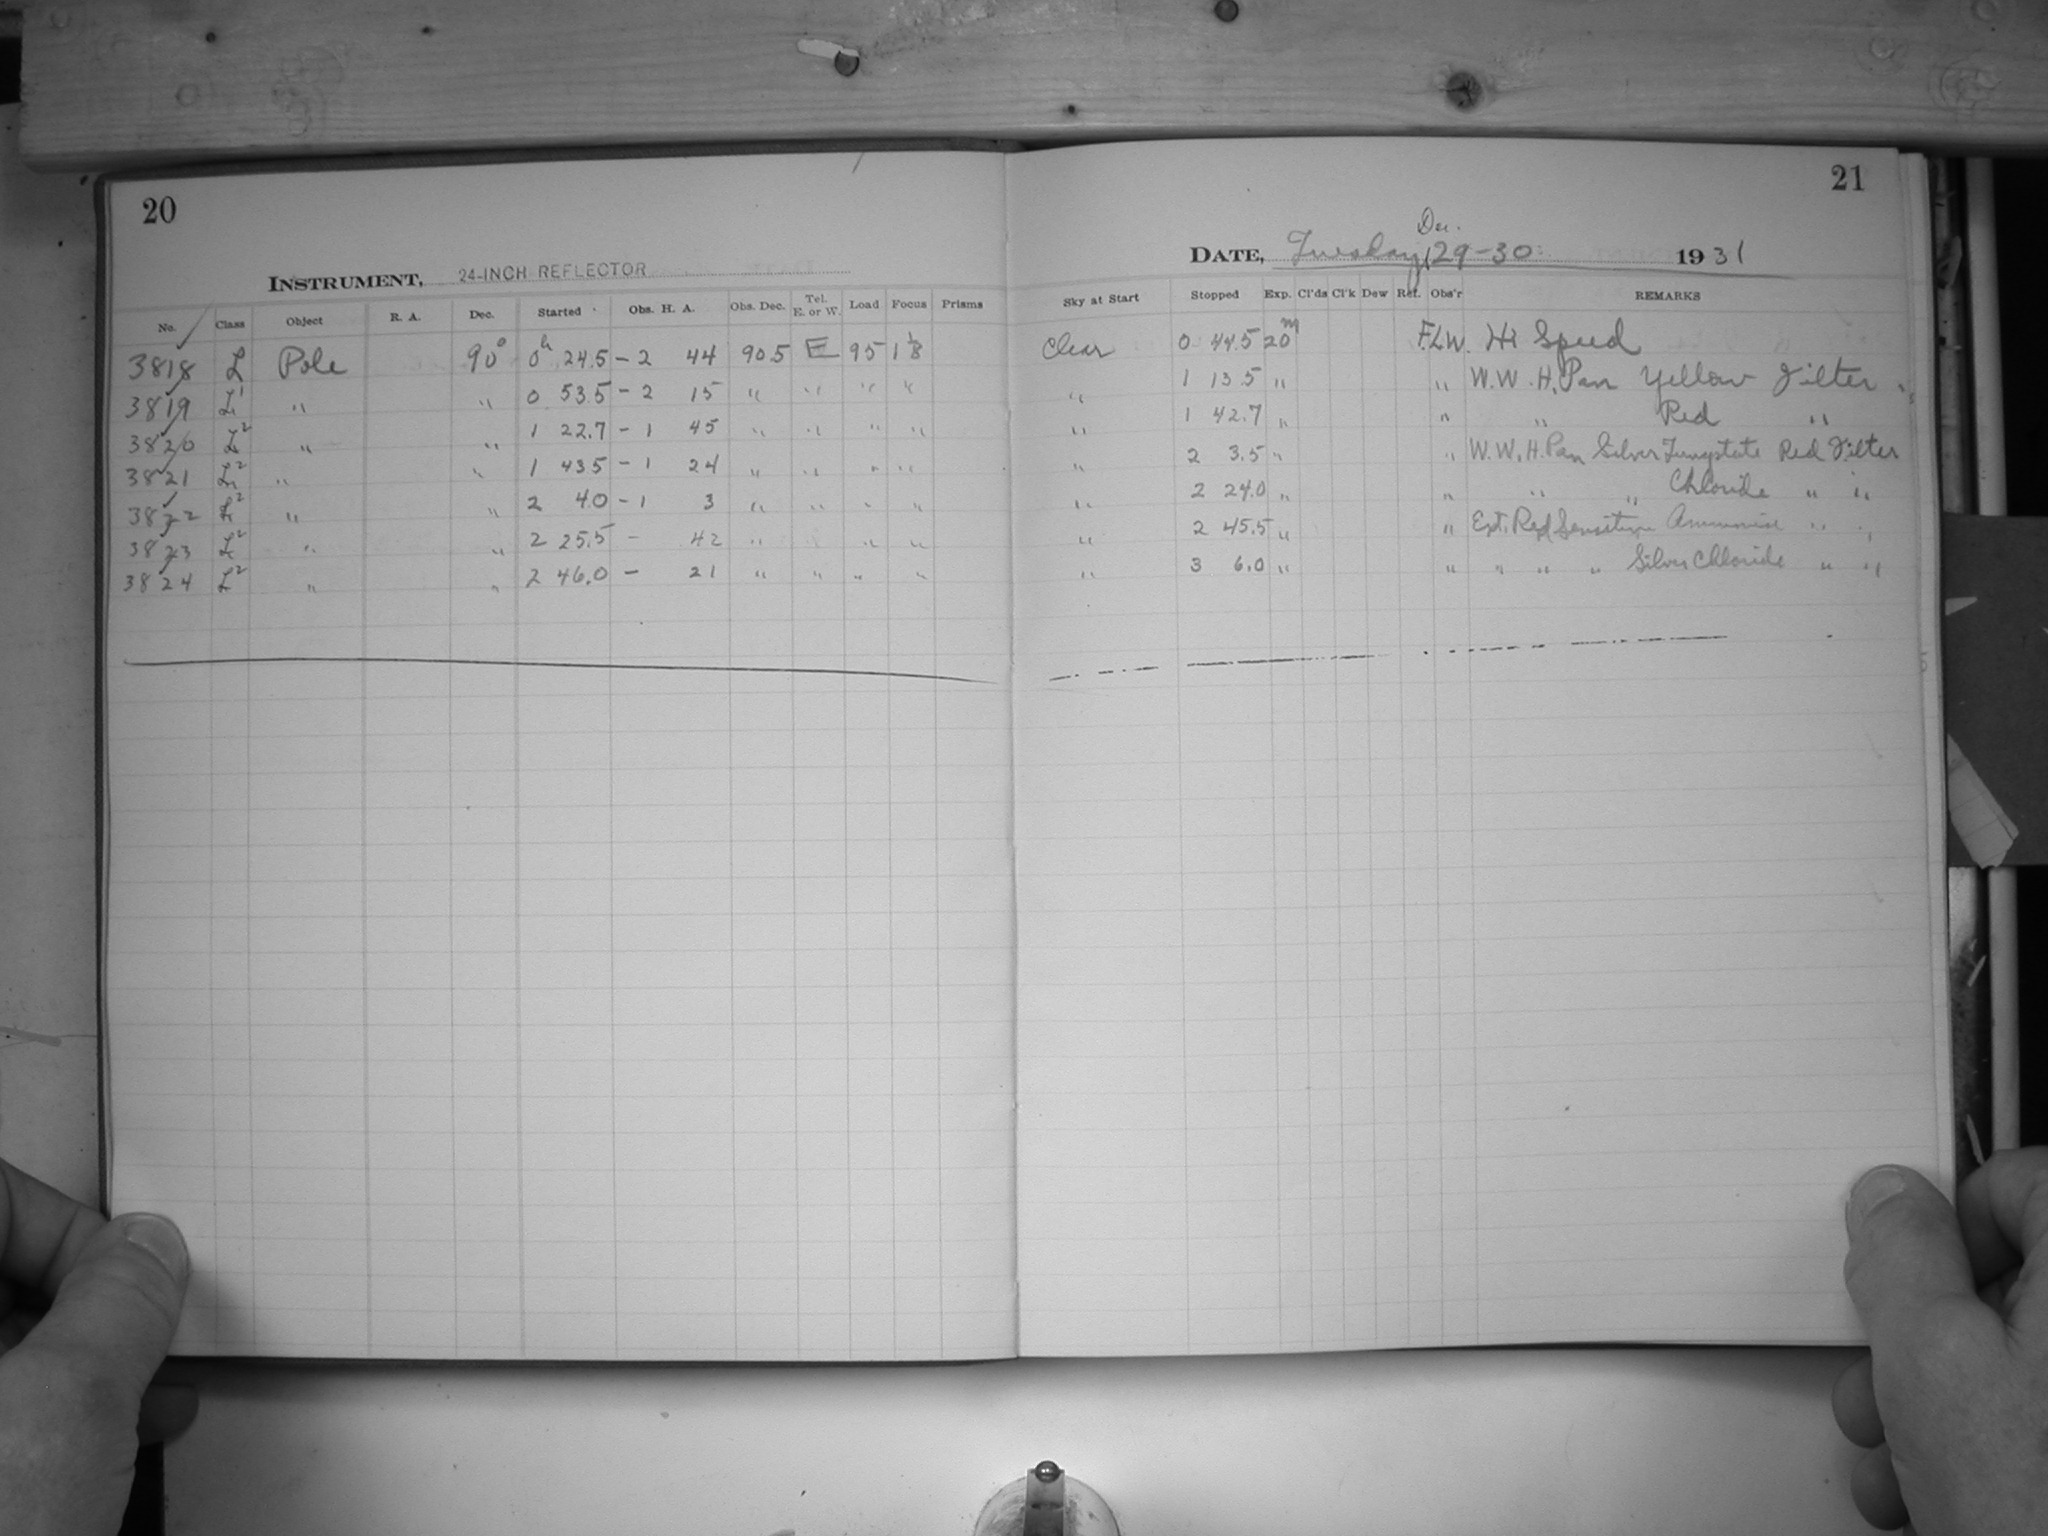 20
INSTRUMENT, 24-INCH REFLECTOR
No. Class Object R. A. Dec. Started Obs. H. A. Obs. Dec. Tel. E. or W. Load Focus Prisms
3818 L Pole 90° 0h 24.5 - 2 44 90.5 E 95 1 1/8
3819 L1 " " 0 53.5 - 2 15 " " " "
3820 L2 " " 1 22.7 - 1 45 " " " "
3821 L2 " " 1 43.5 - 1 24 " " " "
3822 L2 " " 2 4.0 - 1 3 " " " "
3823 L2 " " 2 25.5 - 42 " " " "
3824 L2 " " 2 46.0 - 21 " " " "
21
DATE, Tuesday, Dec. 29-30 1931
Sky at Start Stopped Exp. Cl'ds Cl'k Dew Ref. Obs'r REMARKS
Clear 0 44.5 20m F.L.W. Hi Speed
" 1 13.5 " " W.W.H. Pan Yellow Filter
" 1 42.7 " " " Red "
" 2 3.5 " " W.W.H. Pan Silver Tungstate Red Filter
" 2 24.0 " " " " Chloride " "
" 2 45.5 " " Ext. Red Sensitive Ammonia " "
" 3 6.0 " " " " " Silver Chloride " "